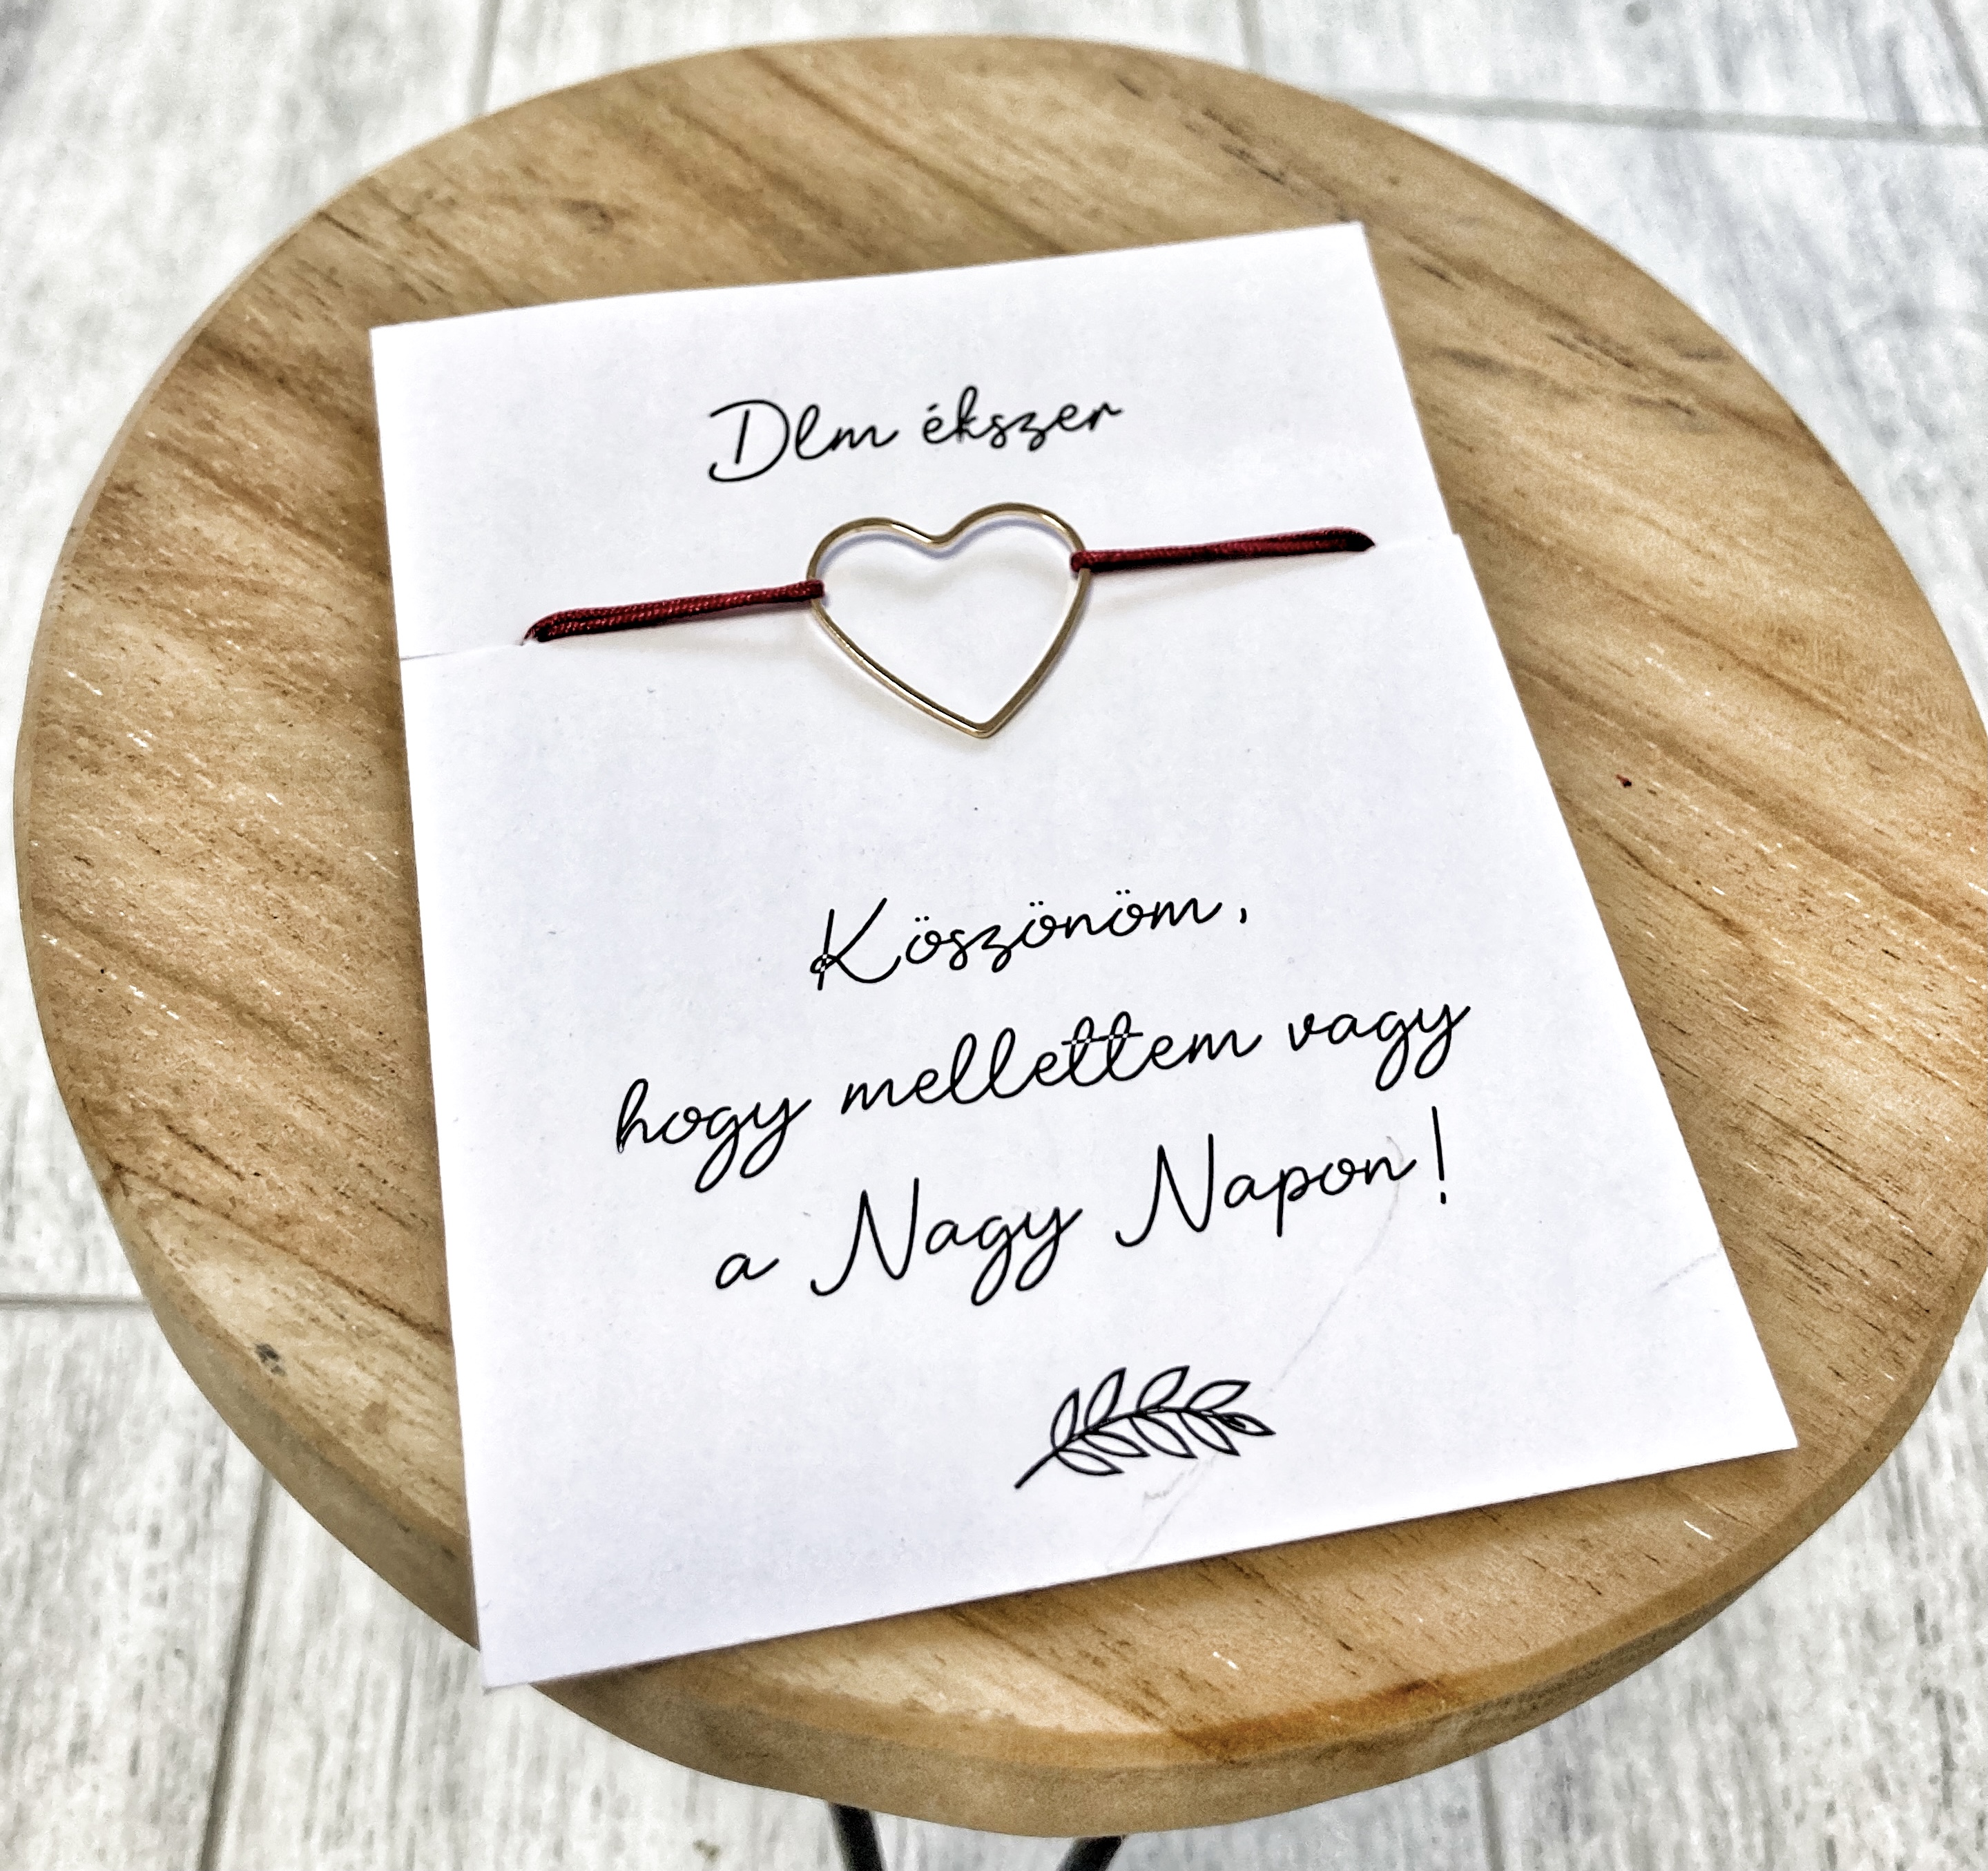 Dlm ékszer
Köszönöm,
hogy mellettem vagy
a Nagy Napon!